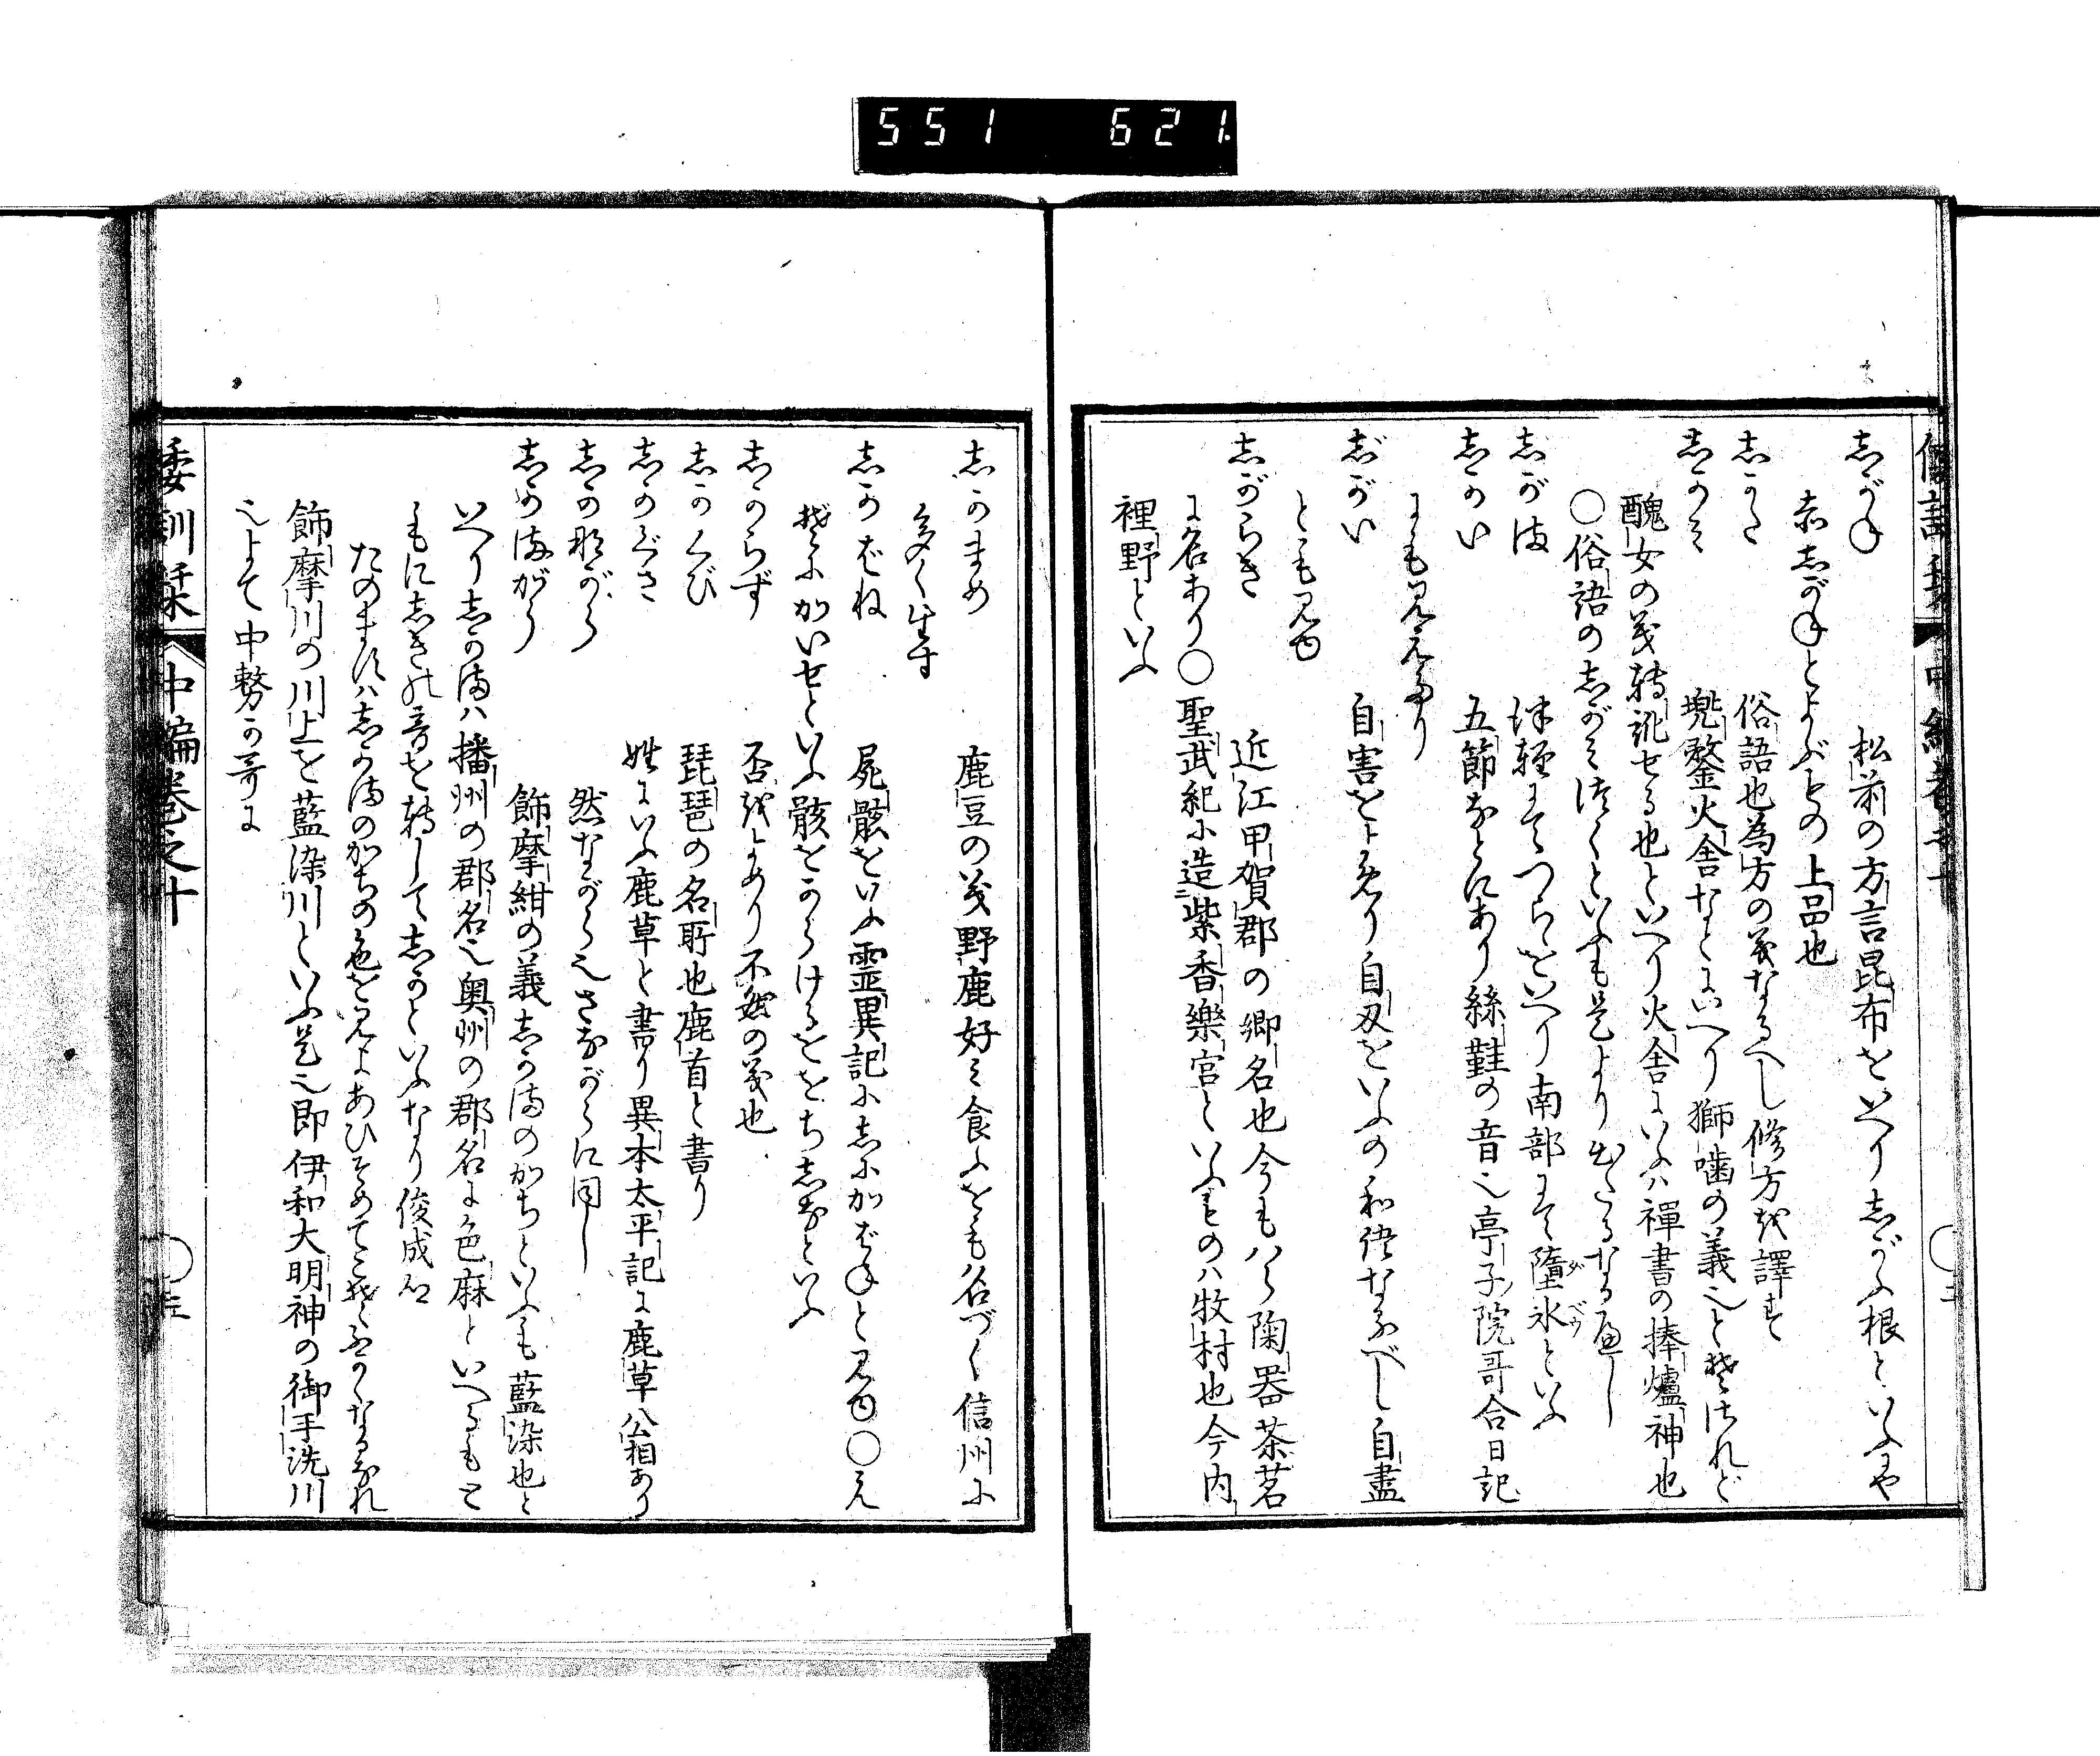 551 621
しがね 松前の方言昆布をいへりしがふ根といふや
赤しがねとよぶもの上品也
しかた 俗語也為方の義なるへし修方を譯す
しかみ 兜鍪火舎なとにいへり獅噛の義也とぞされど
醜女の義轉訛せる也といへり火舎にいふハ禪書の捧爐神也
〇俗語のしがみつくといふも是より出たるなるべし
しがま 津軽にてつらゝをいへり南部にて墮氷といふ
しかい 五節なとにあり絲鞋の音也亭子院哥合日記
にも見えたり
じがい 自害をよめり自刄をいふの和語なるべし自盡
とも見ゆ
しがらき 近江甲賀郡の郷名也今もハら陶器茶茗
に名あり〇聖武紀に造紫香樂宮といふものハ牧村也今内
裡野といふ
しかまめ 鹿豆の義野鹿好み食ふをも名づく信州に
多く生す
しかばね 屍骸をいふ霊異記にしにかばねと見ゆ〇え
ぞにかいせといふ骸をからけるををちしなといふ
しからず 否をよめり不然の義也
しかくび 琵琶の名所也鹿首と書り
しかぐさ 姓にいふ鹿草と書り異本太平記に鹿草公相あり
しかながら 然なからも也さながらに同し
しかまがち 飾摩紺の義しかまのかちといふも藍染也と
いへりしかまハ播州の郡名也奥州の郡名に色麻といへるもと
もにしきの音を轉してしかといふなり俊成卿
たのますハしかまのかちの色を見よあひそめてこそふかくなるなれ
飾摩川の川上を藍染川といふ是也即伊和大明神の御手洗川
也よて中務の哥に
倭訓栞 中編巻之十 〇五